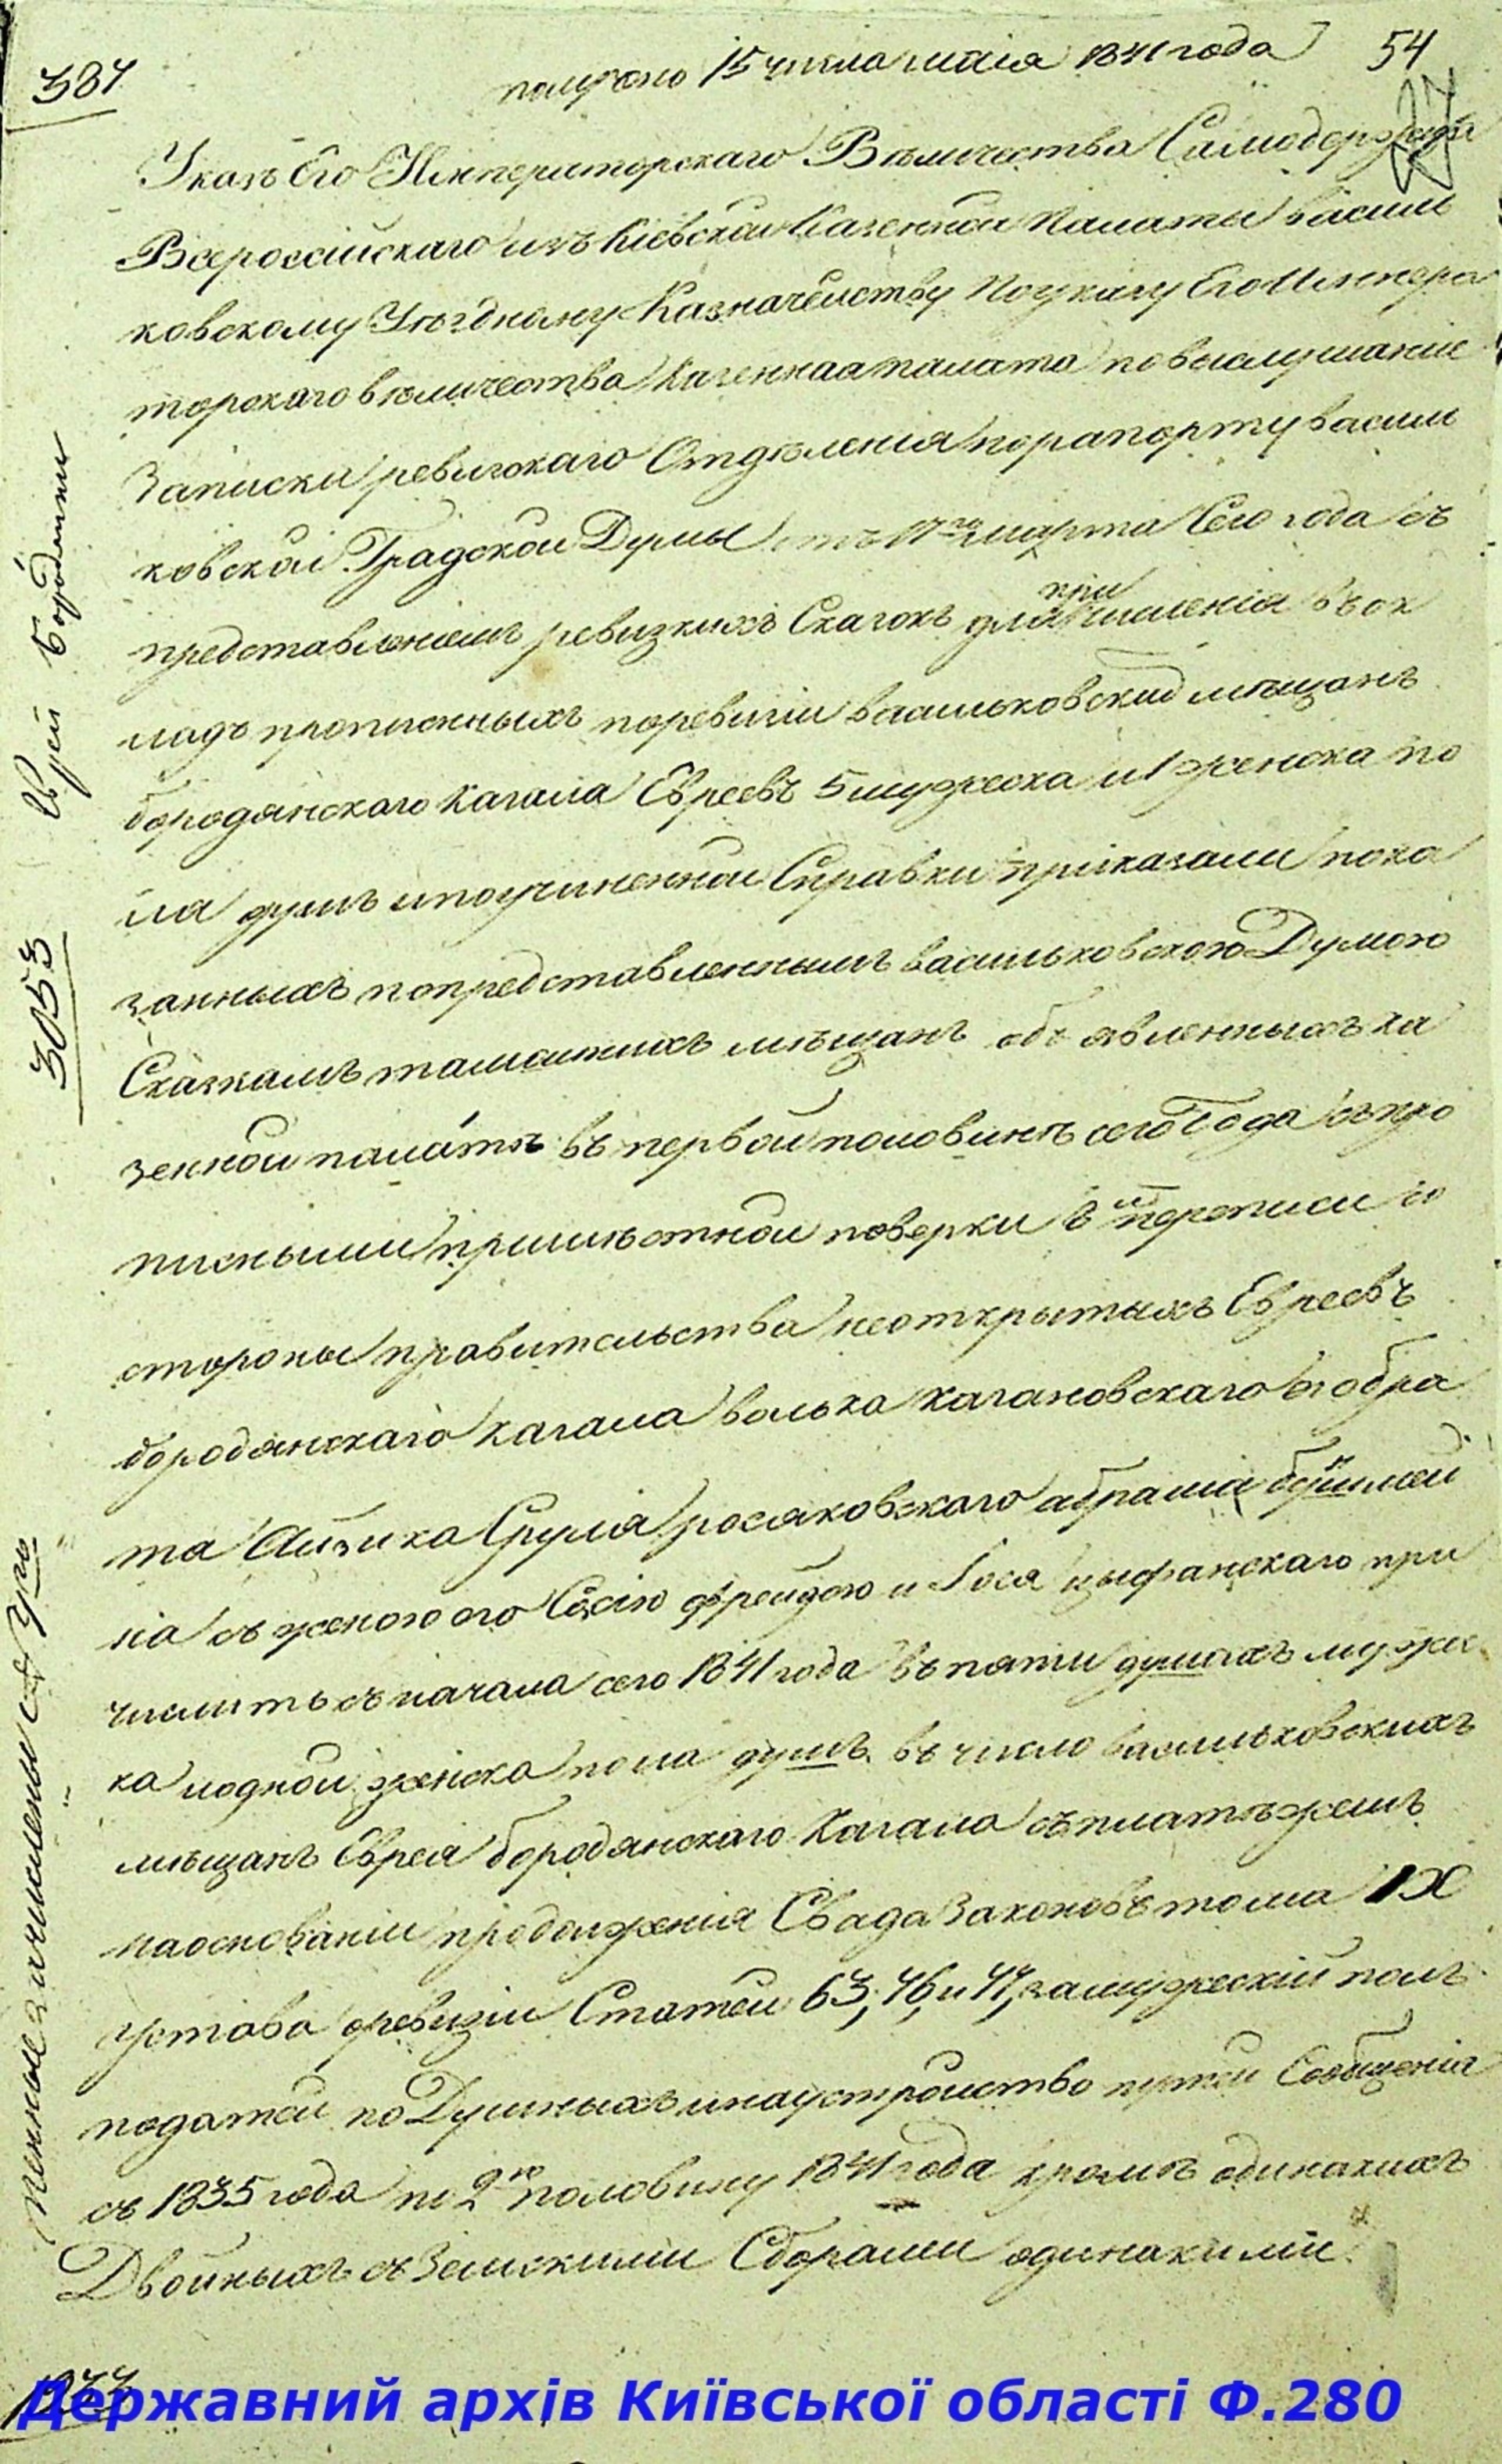 387
получено 15 числа маія 1841 года 54
Указъ Его Императорскаго Величества Самодержца
Всероссійскаго изъ Кіевской Казенной Палаты василь
ковскому Уѣздному Казначейству По указу Его Импера
торскаго величества Казенная палата по выслушаніи
Записки ревизскаго Отдѣленія по рапорту василь
ковской Градской Думы отъ 17го марта Сего года съ
представленіемъ ревизкихъ Сказокъ для причисленія въ ок
ладъ прописныхъ по ревизіи васильковскихъ мѣщанъ
бородянскаго кагала Евреевъ 5 мужеска и 1 женска по
ла душъ и по учиненной Справки приказали пока
занныхъ по представленнымъ васильковскою Думою
Сказкамъ тамошнихъ мѣщанъ объявленныхъ ка
зенной палатѣ въ первой половинѣ сего Года съ про
писными при мѣстной поверки 8й переписи со
стороны правительства неоткрытыхъ Евреевъ
бородянскаго кагала волька кагановскаго его бра
та Айзика Сруля росяковскаго абрама
на съ женою его Сосію фрейдою и Іося цыфанскаго при
числить съ начала сего 1841 года въ пяти душахъ мужес
ка и одной женска пола душъ въ число васильковскихъ
мѣщанъ Еврея бородянскаго Кагала съ платежемъ
на основаніи продолженія Свода Законовъ тома IX
устава о ревизіи Статей 63, 46, и 47, за мужескій полъ
податей по Душныхъ и на устройство путей Сообщенія
съ 1835 года по 2ю половину 1841 года кромѣ одинакихъ
Двойныхъ съ Земскими Сборами одинакими
Еврей Бородянки
3053
Державний архів Київської області Ф.280